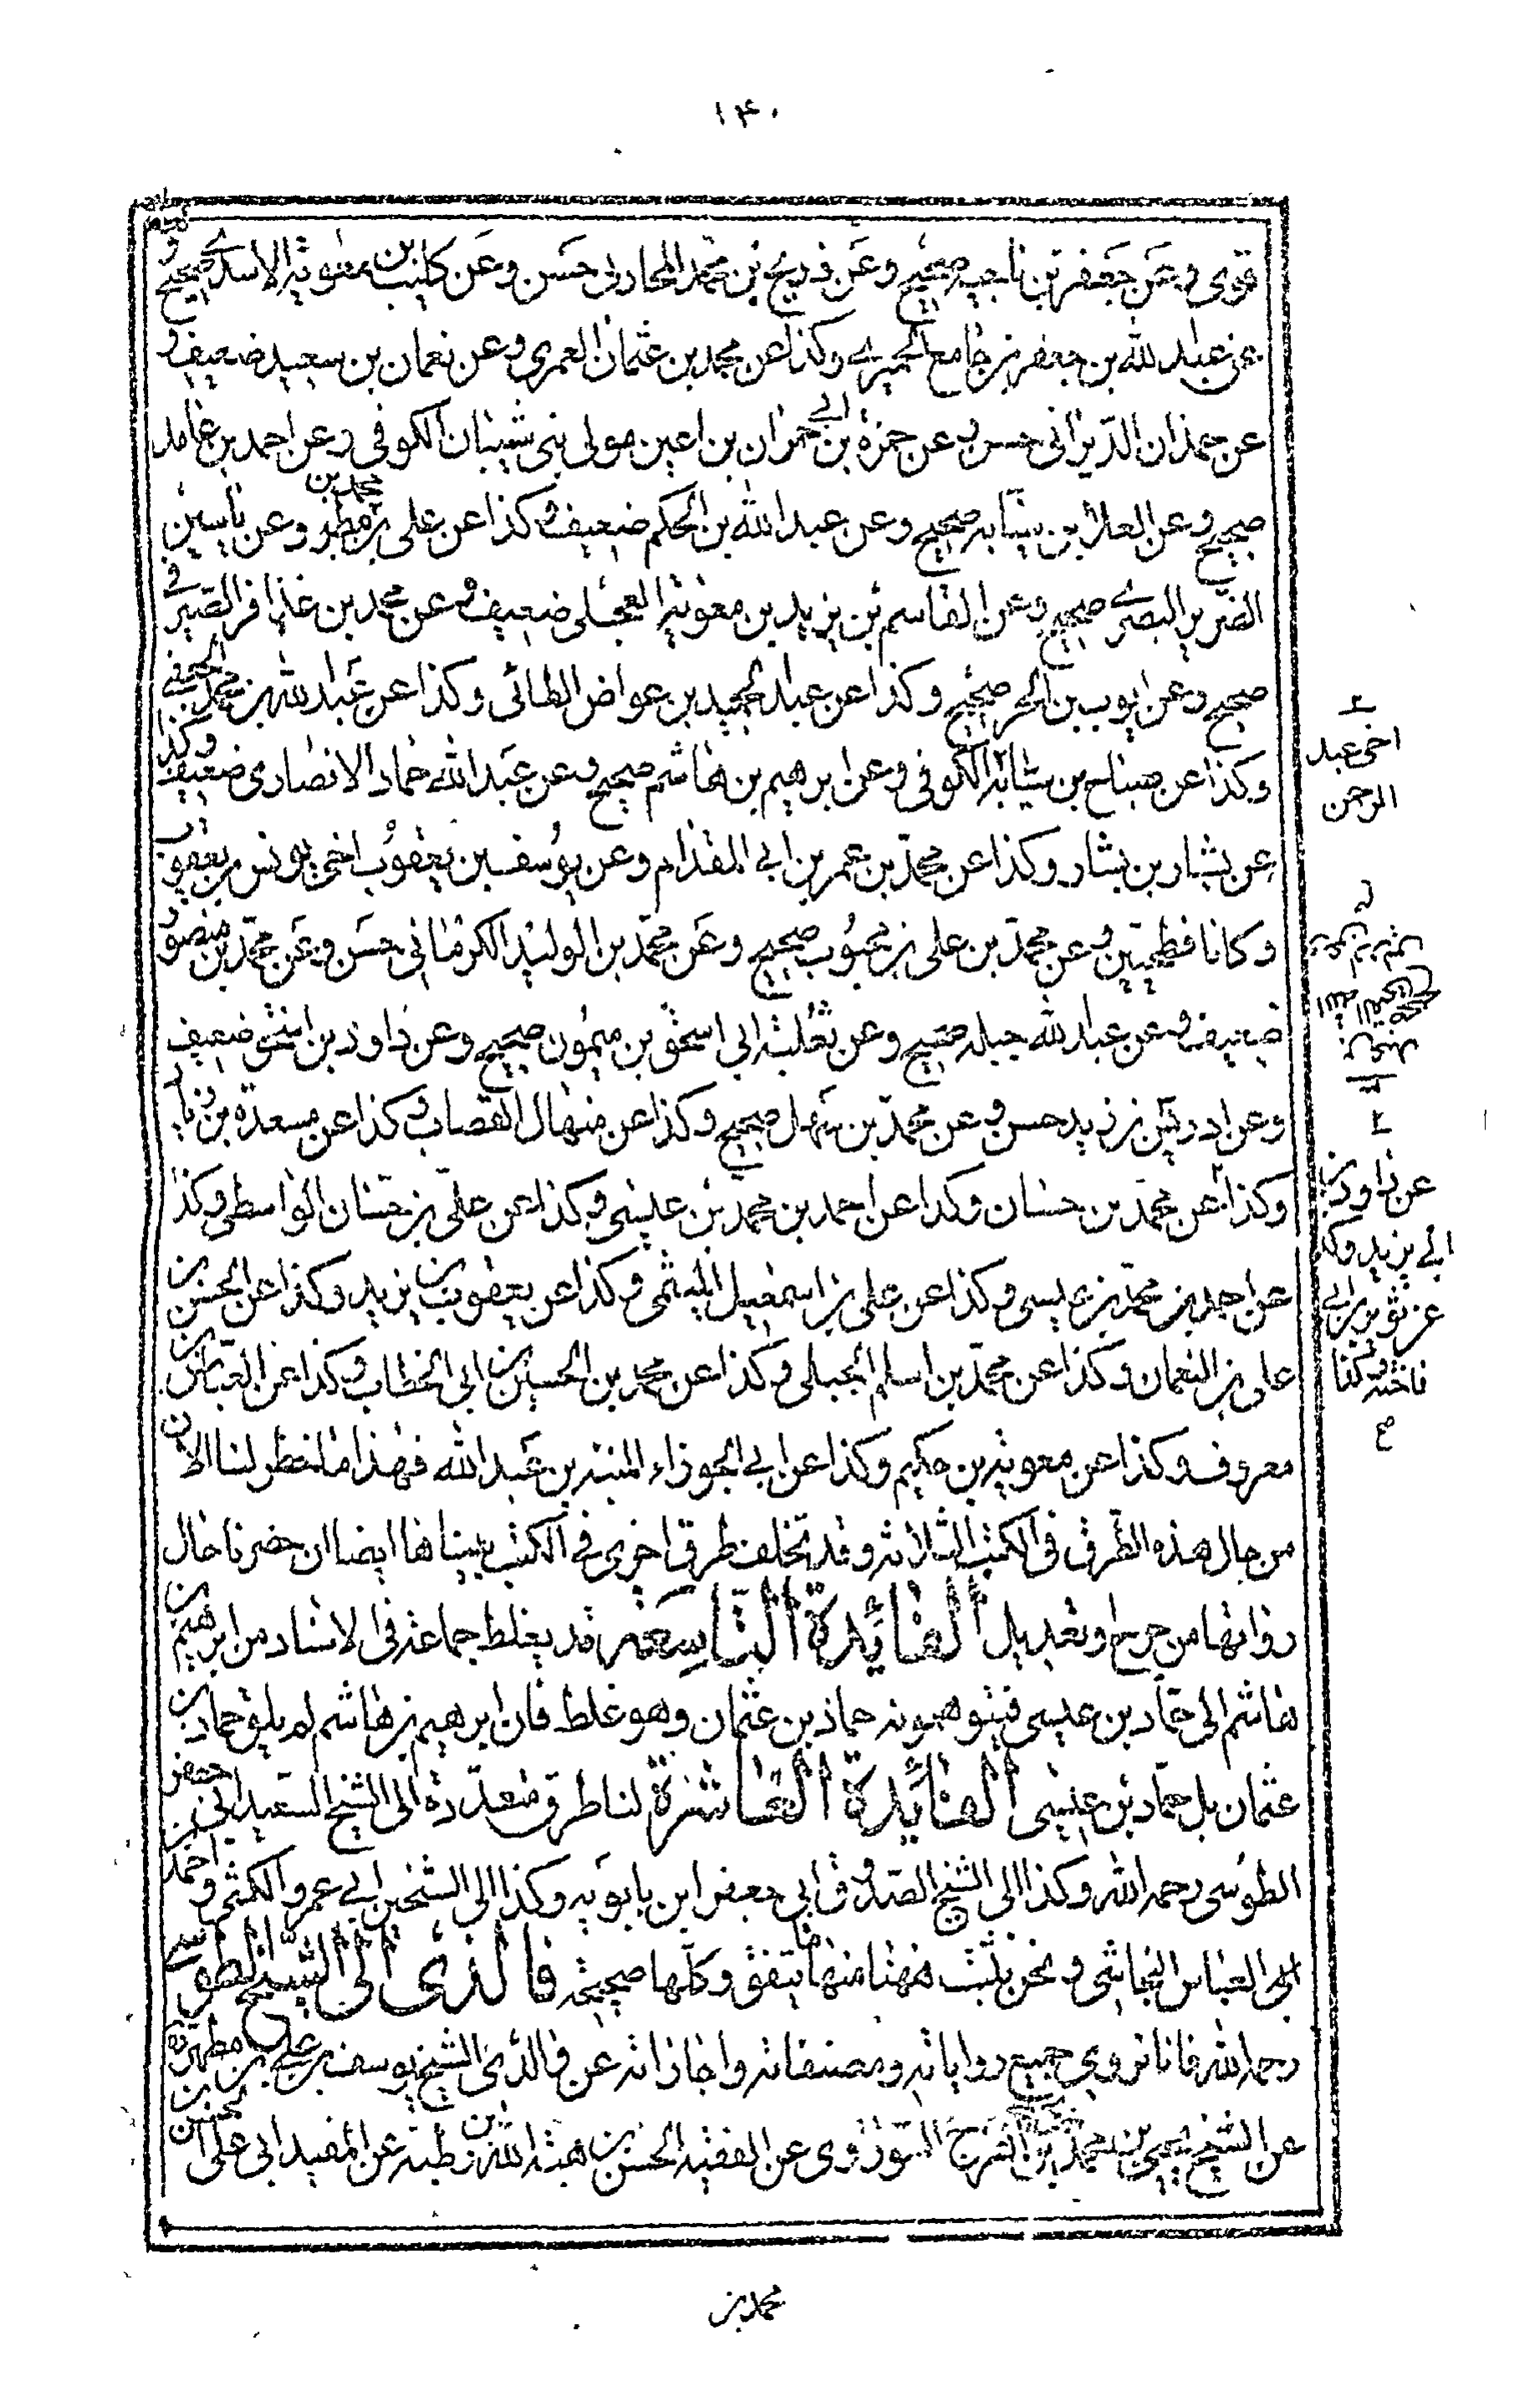 ۱۴۰
قوى وعن جعفر بن ناجيه صحيح وعن ذريح بن محمد المحاربى حسن وعن كليب بن معوية الاسدى صحيح و
عن عبد الله بن جعفر بن جامع الحميرى وكذا عن محمد بن عثمان العمرى وعن نعمان بن سعيد ضعيف و
عن حمدان الديرانى حسن وعن حمزة بن ابى حمران بن اعين مولى بنى شيبان الكوفى وعن احمد بن عامد
صحيح وعن العلا بن سيابه صحيح وعن عبد الله بن الحكم ضعيف وكذا عن على بن محمد بن مطهر وعن ياسين
الضرير البصرى صحيح وعن القاسم بن يزيد بن معوية العجلى ضعيف وعن محمد بن عذافر الصيرفى
صحيح وعن ايوب بن الحر صحيح وكذا عن عبد الحميد بن عواض الطائى وكذا عن عبد الله بن محمد الجعفى
وكذا عن صباح بن سيابة الكوفى وعن ابرهيم بن هاشم صحيح وعن عبد الله حماد الانصارى ضعيف وكذا
عن بشار بن بشار وكذا عن محمد بن عمر بن ابى المقدام وعن يوسف بن يعقوب اخى يونس بن يعقوب
وكانا فطحيين وعن محمد بن على بن محبوب صحيح وعن محمد بن الوليد الكرمانى حسن وعن محمد بن منصور
ضعيف وعن عبد الله جبله صحيح وعن ثعلبة ابى اسحق بن ميمون صحيح وعن داود بن اسحق ضعيف
وعن ادريس بن زيد حسن وعن محمد بن سهل صحيح وكذا عن منهال القصاب وكذا عن مسعدة بن زياد
وكذا عن محمد بن حسان وكذا عن احمد بن محمد بن عيسى وكذا عن على بن حسان الواسطى وكذا
عن احمد بن محمد بن عيسى وكذا عن على بن اسمعيل الميثمى وكذا عن يعقوب بن يزيد وكذا عن الحسن بن
على بن النعمان وكذا عن محمد بن اسلم الجبلى وكذا عن محمد بن الحسين بن ابى الخطاب وكذا عن العباس بن
معروف وكذا عن معوية بن حكيم وكذا عن ابى الجوزاء المنبه بن عبد الله فهذا ما لخطر لنا الان
من حال هذه الطرق فى الكتب الثلاثة وقد تخلف طرق اخرى فى الكتب بيناها ايضا ان حضرنا حال
رواتها من جرح وتعديل الفائدة التاسعة قد يغلط جماعة فى الاسناد من ابرهيم بن
هاشم الى حماد بن عيسى فيتوهمونه حماد بن عثمان وهو غلط فان ابرهيم بن هاشم لم يلق حماد بن
عثمان بل حماد بن عيسى الفائدة العاشرة لنا طرق متعددة الى الشيخ السعيد ابى جعفر
الطوسى رحمه الله وكذا الى الشيخ الصدوق ابى جعفر ابن بابويه وكذا الى الشيخين ابى عمرو الكشى واحمد بن
ابى العباس النجاشى ونحن نثبت ههنا منها ما يتفق وكلها صحيحة فالذى الى الشيخ الطوسى
رحمه الله فانا نروى جميع رواياته ومصنفاته واجازاته عن والدى الشيخ يوسف بن على بن مطهر ره
عن الشيخ يحيى بن محمد بن الفرج السوراوى عن الفقيه الحسن بن هبة الله بن رطبة عن المفيد ابى على الحسن بن
اخى عبد
الرحمن
عن داود بن
ابى يزيد وكذا
عن ثوير بن ابى
فاخته وكذا
ع
محمد بن